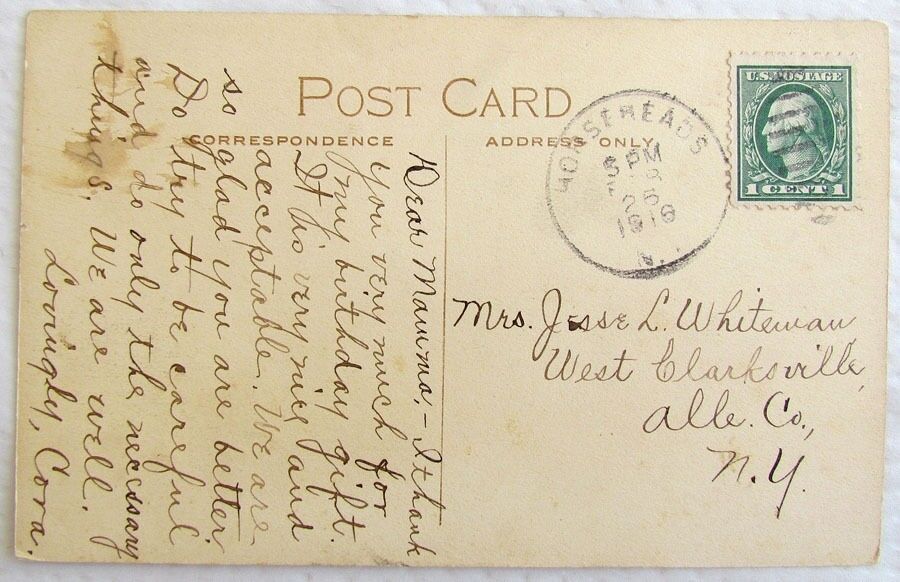 POST CARD
CORRESPONDENCE
ADDRESS ONLY
Dear Mamma, - I thank
you very much for
my birthday gift.
It is very nice and
acceptable. We are
so glad you are better
Do try to be careful
and do only the necessary
things. We are well.
Lovingly, Cora.
HORSEHEADS
5 PM
25
1916
N.
U.S. POSTAGE
1 CENT 1
Mrs. Jesse L. Whiteman
West Clarksville
Alle. Co.,
N.Y.